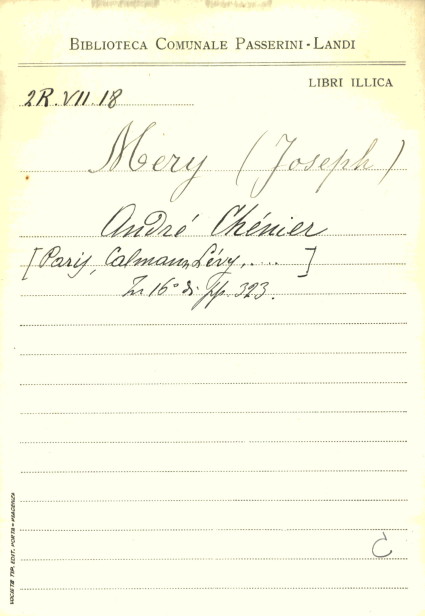 BIBLIOTECA COMUNALE PASSERINI - LANDI
LIBRI ILLICA
2R.VII.18
Mery (Joseph)
André Chénier
[Paris, Calmann Lévy, ....]
In 16° di pp. 323.
C
SOCIETÀ TIP. EDIT. PORTA - PIACENZA